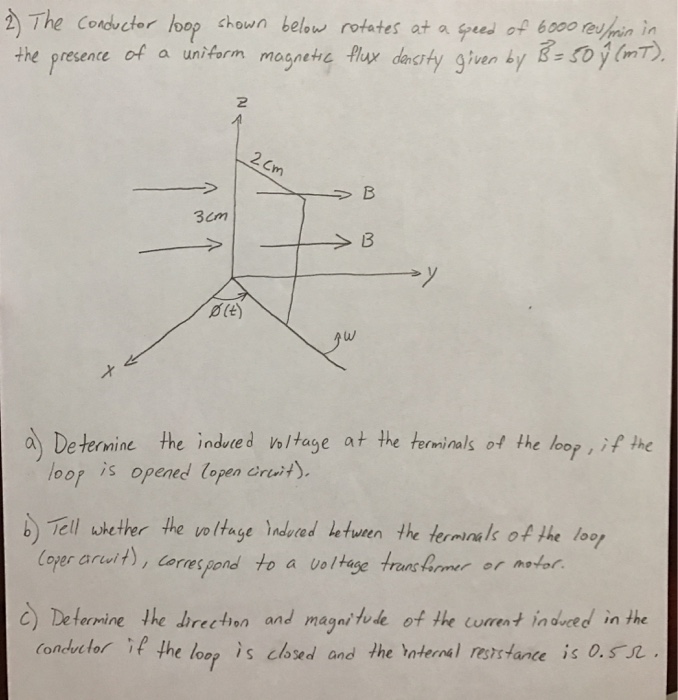 2) The conductor loop shown below rotates at a speed of 6000 rev/min in
the presence of a uniform magnetic flux density given by B⃗ = 50 ŷ (mT).
z
2 cm
B
3 cm
B
y
Ø(t)
w
x
a) Determine the induced voltage at the terminals of the loop, if the
loop is opened (open circuit).
b) Tell whether the voltage induced between the terminals of the loop
(open circuit), correspond to a voltage transformer or motor.
c) Determine the direction and magnitude of the current induced in the
conductor if the loop is closed and the internal resistance is 0.5 Ω.